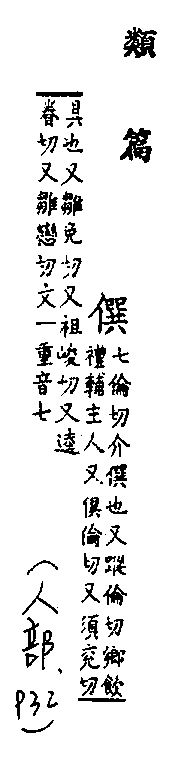 類篇
僎
七倫切介僎也又蹤倫切鄉飲
禮輔主人又俱倫切又須兖切
具也又雛免切又祖峻切又逵
眷切又雛戀切文一重音七
(人部、P32)